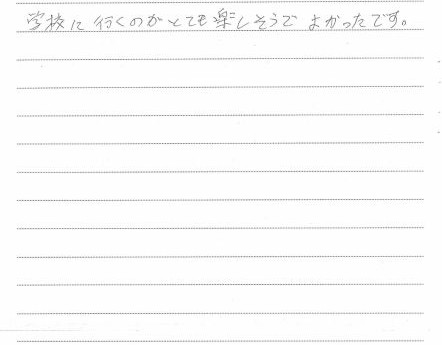 学校に行くのがとても楽しそうでよかったです。